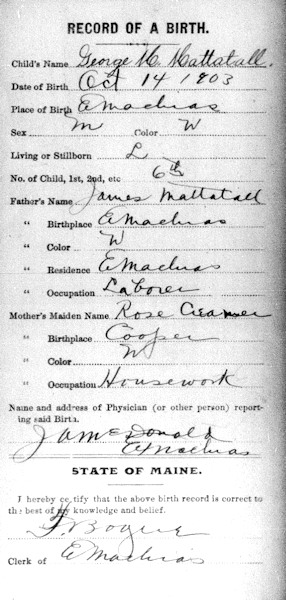 RECORD OF A BIRTH.
Child's Name George M. Mattatall.
Date of Birth Oct 14 1903
Place of Birth E Machias
Sex M Color W
Living or Stillborn L
No. of Child, 1st, 2nd, etc 6th
Father's Name James Mattatall
" Birthplace E Machias
" Color W
" Residence E Machias
" Occupation Laborer
Mother's Maiden Name Rose Creamer
" Birthplace Cooper
" Color W
" Occupation Housework
Name and address of Physician (or other person) report-
ing said Birth.
J A McDonald
E Machias
STATE OF MAINE.
I hereby certify that the above birth record is correct to
the best of my knowledge and belief.
Bogue
Clerk of E Machias